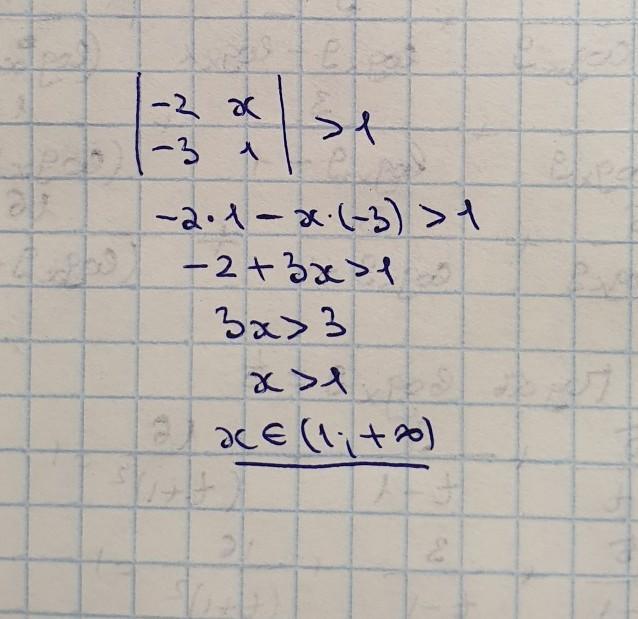 | -2 x |
| -3 1 | > 1
-2·1 - x·(-3) > 1
-2 + 3x > 1
3x > 3
x > 1
x ∈ (1; +∞)